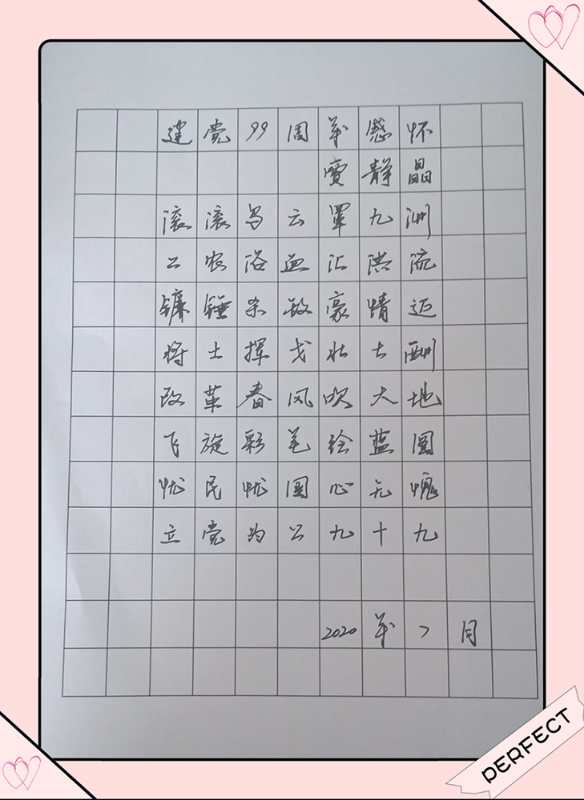 建党99周年感怀
窦静晶
滚滚乌云罩九洲
工农浴血汇洪流
镰锤杀敌豪情迈
将士挥戈壮志酬
改革春风吹大地
飞旋彩笔绘蓝图
忧民忧国心无愧
立党为公九十九
2020年7月
PERFECT